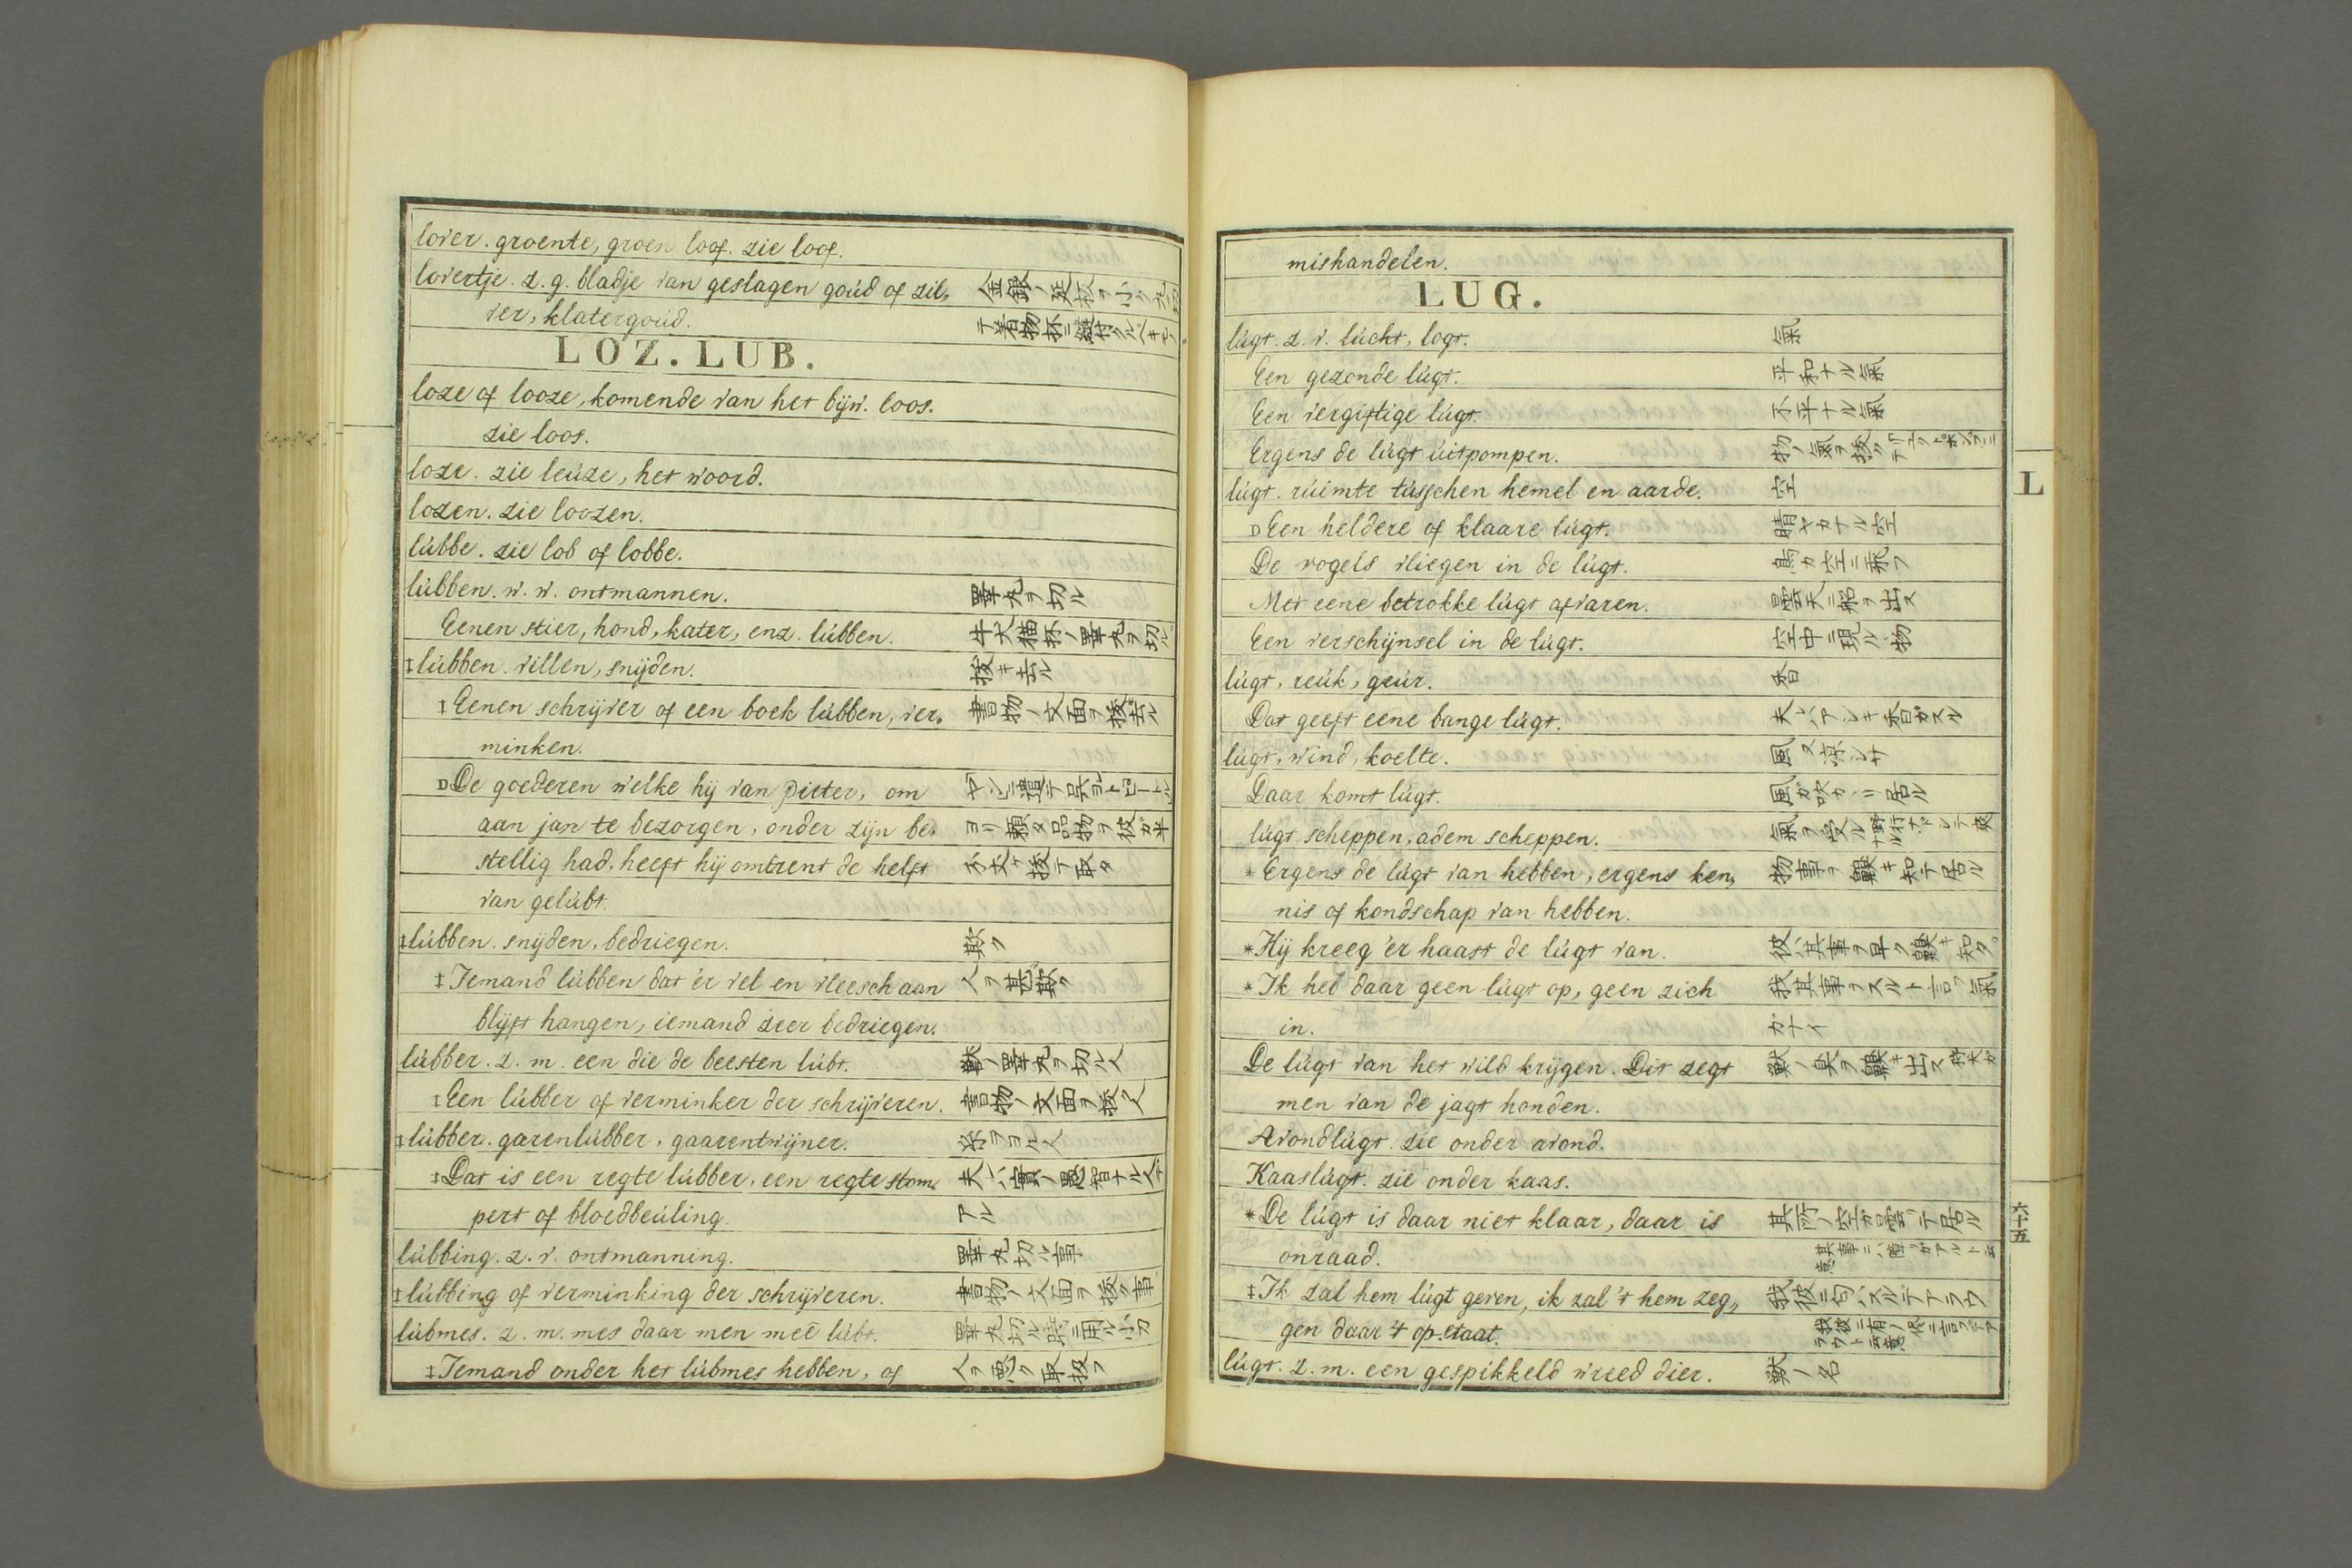 lover. groente, groen loof. zie loof.
lovertje. z. g. bladje van geslagen goúd of zil, 金銀ノ延板ヲ小ク丸切
ver, klatergoúd. テ着物抔ニ縫付クルヘキモノ
LOZ. LUB.
loze of looze, komende van het bijw. loos.
zie loos.
loze. zie leúze, het woord.
lozen. zie loozen.
lúbbe. zie lob of lobbe.
lúbben. w. w. ontmannen. 睪丸ヲ切ル
Eenen stier, hond, kater, enz. lúbben. 牛犬猫抔ノ睪丸ヲ切ル
‡lúbben. villen, snijden. 拔キ去ル
‡Eenen schrijver of een boek lúbben, ver, 書物ノ文面ヲ拔去ル
minken.
D De goederen welke hij van pieter, om ヤンニ遣テ呉ヨトピートル
aan jan te bezorgen, onder zijn be, ヨリ頼タ品物ヲ彼ガ半
stellig had, heeft hij omtrent de helft 分丈ケ拔テ取タ
van gelúbt.
‡lúbben. snijden, bedriegen. 欺ク
‡Iemand lúbben dat 'er vel en vleesch aan 人ヲ甚欺ク
blijft hangen, iemand zeer bedriegen.
lúbber. z. m. een die de beesten lúbt. 獸ノ睪丸ヲ切ル人
‡Een lúbber of verminker der schrijveren. 書物ノ文面ヲ拔ク人
‡lúbber. garenlúbber, gaarentwijner. 糸ヲヨル人
‡Dat is een regte lúbber, een regte stom, 夫ハ實ノ愚智ナル人デ
pert of bloedbeúling. アル
lúbbing. z. v. ontmanning. 睪丸切ル事
‡lúbbing of verminking der schrijveren. 書物ノ文面ヲ拔ク事
lúbmes. z. m. mes daar men meê lúbt. 睪丸切ル時ニ用ル小刀
‡Iemand onder het lúbmes hebben, of 人ヲ悪ク取扱フ
mishandelen.
LUG.
lúgt. z. v. lúcht, logt. 氣
Een gezonde lúgt. 平和ナル氣
Een vergiftige lúgt. 不平ナル氣
Ergens de lúgt úitpompen. 物ノ氣ヲ拔ク
lúgt. rúimte túsſchen hemel en aarde. 空
D Een heldere of klaare lúgt. 晴ヤカナル空
De vogels vliegen in de lúgt. 鳥ガ空ニ飛フ
Met eene betrokke lúgt afvaren. 曇天ニ船ヲ出ス
Een verschijnsel in de lúgt. 空中ニ現ル物
lúgt, reúk, geúr. 香
Dat geeft eene bange lúgt. 夫ハアシキ香ガスル
lúgt, wind, koelte. 風又涼シサ
Daar komt lúgt. 風ガ吹カヽリ居ル
lúgt scheppen, adem scheppen. 氣ヲ受ル
*Ergens de lúgt van hebben, ergens ken, 物事ヲ齅キ知テ居ル
nis of kondschap van hebben.
*Hij kreeg 'er haast de lúgt van. 彼ハ其事ヲ早ク齅キ知タ。
*Ik heb daar geen lúgt op, geen zich 我其事ヲスルト言フ氣
in. ガナイ
De lúgt van het wild krijgen. Dit zegt 獸ノ臭ヲ齅キ出ス 狩犬ガ
men van de jagt honden.
Avondlúgt. zie onder avond.
Kaaslúgt. zie onder kaas.
*De lúgt is daar niet klaar, daar is 其所ノ空ガ雲リテ居ル
onraad.
‡Ik zal hem lúgt geven, ik zal 't hem zeg, 我彼ニ匂ハスルテアラウ
gen daar 't op staat.
lúgt. z. m. een gespikkeld wreed dier. 獸ノ名
L
六十五